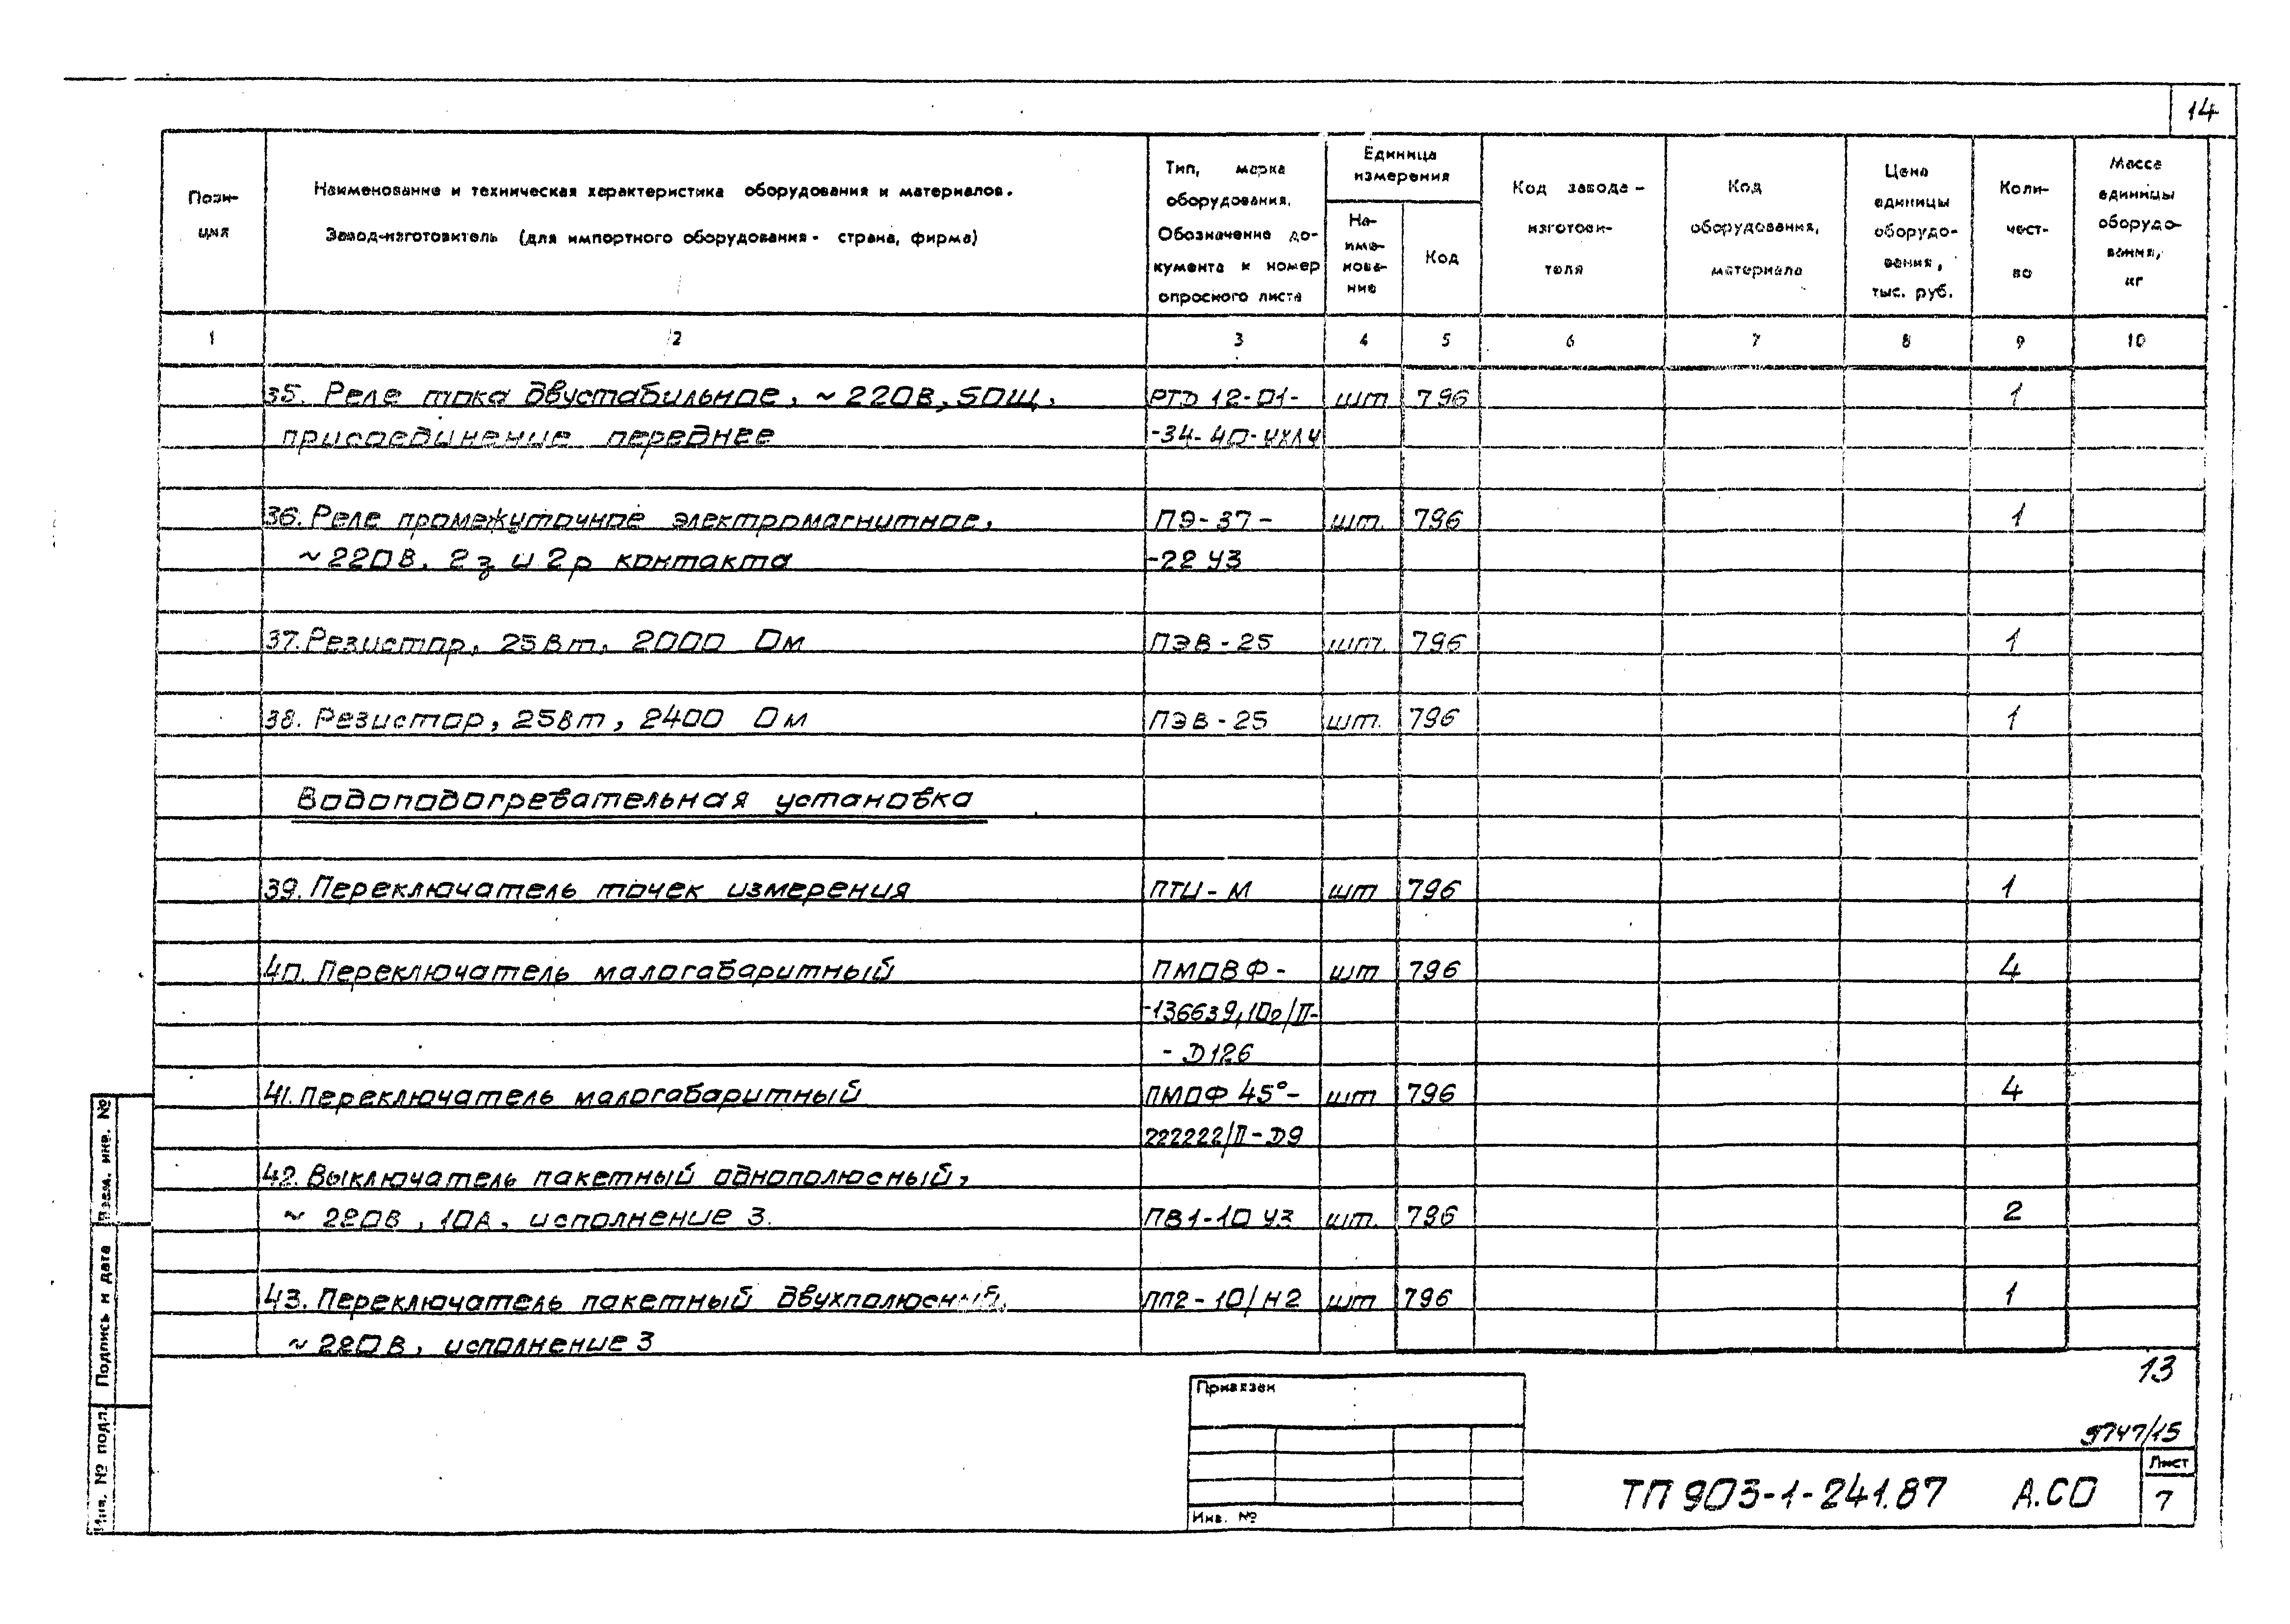 14
Пози-
ция
Наименование и техническая характеристика оборудования и материалов.
Завод-изготовитель (для импортного оборудования - страна, фирма)
Тип, марка
оборудования.
Обозначение до-
кумента и номер
опросного листа
Единица
измерения
На-
име-
нова-
ние
Код
Код завода-
изготови-
теля
Код
оборудования,
материала
Цена
единицы
оборудо-
вания,
тыс. руб.
Коли-
чест-
во
Масса
единицы
оборудо-
вания,
кг
1 2 3 4 5 6 7 8 9 10
35. Реле тока двустабильное, ~220В, 50Щ, РТД 12-01- шт 796 1
присоединение переднее -34-40-УХЛ4
36. Реле промежуточное электромагнитное, ПЭ-37- шт. 796 1
~220В, 2з и 2р контакта -22 У3
37. Резистор, 25Вт, 2000 Ом ПЭВ-25 шт. 796 1
38. Резистор, 25Вт, 2400 Ом ПЭВ-25 шт. 796 1
Водоподогревательная установка
39. Переключатель точек измерения ПТЦ-М шт 796 1
40. Переключатель малогабаритный ПМОВФ- шт 796 4
-136639,10г/II-
-Д126
41. Переключатель малогабаритный ПМОФ 45°- шт 796 4
222222/II-Д9
42. Выключатель пакетный однополюсный,
~ 220В, 10А, исполнение 3. ПВ1-10 У3 шт. 796 2
43. Переключатель пакетный двухполюсный, ПП2-10/Н2 шт 796 1
~220В, исполнение 3
13
Привязан
9747/15
Инв. №
ТП 903-1-241.87 А.СО
Лист
7
Взам. инв. №
Подпись и дата
Инв. № подл.